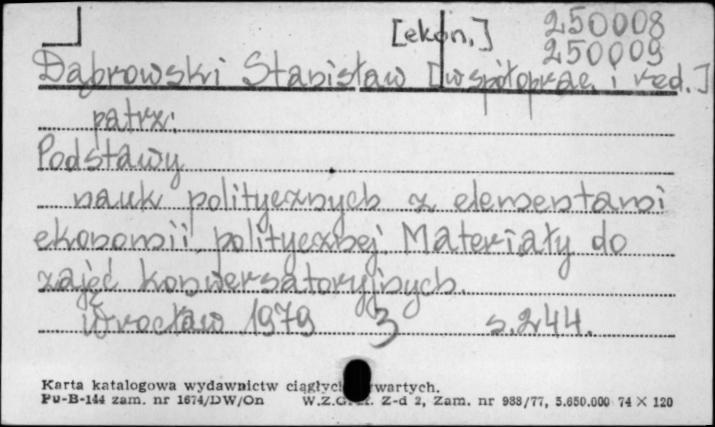 [ekon.] 250008
250009
Dąbrowski Stanisław [współoprac. i red.]
patrz:
Podstawy
nauk politycznych z elementami
ekonomii politycznej Materiały do
zajęć konwersatoryjnych.
Wrocław 1979 3 s.244.
Karta katalogowa wydawnictw ciągłych zwartych.
Pu-B-144 zam. nr 1674/DW/On W.Z.Graf. Z-d 2, Zam. nr 988/77, 5.650.000 74 X 120